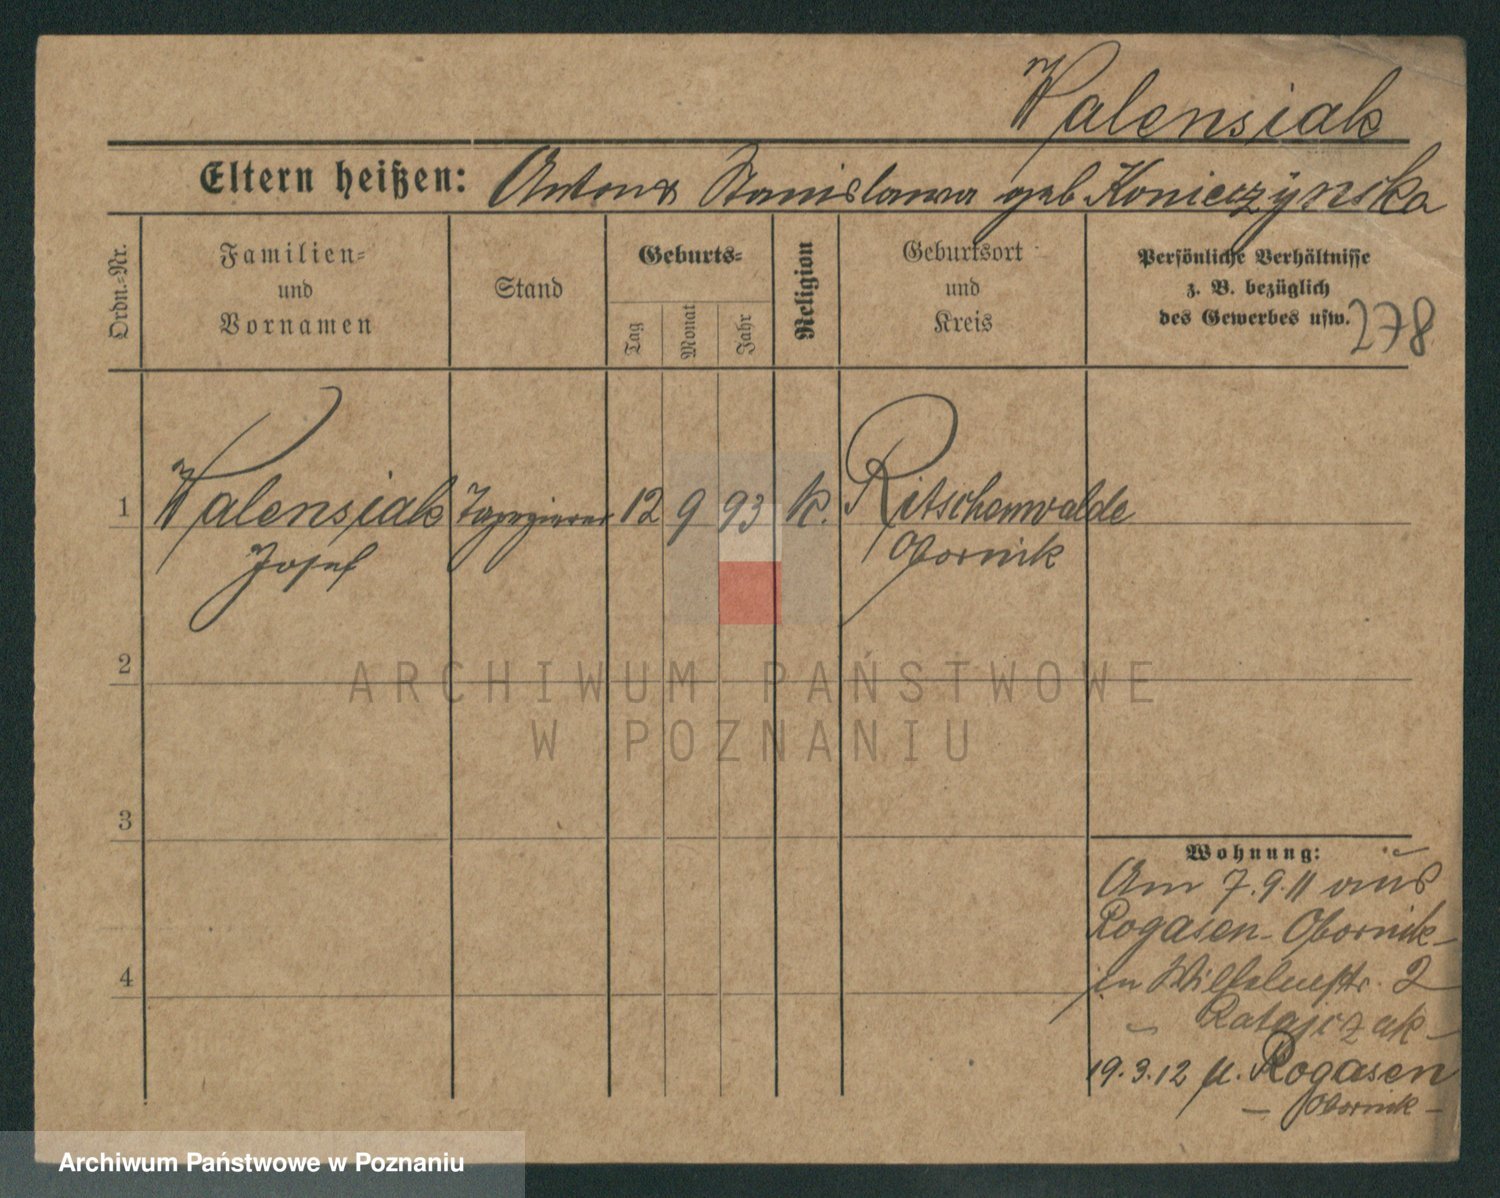 Walensiak
Eltern heißen: Anton & Stanislawa geb Konieczynska
Ordn.=Nr.
Familien=
und
Vornamen
Stand
Geburts=
Tag
Monat
Jahr
Religion
Geburtsort
und
Kreis
Persönliche Verhältnisse
z. B. bezüglich
des Gewerbes usw.
278
1 Walensiak Tapezierer 12 9 93 k. Ritschenwalde
Josef Obornik
2
ARCHIWUM PAŃSTWOWE
W POZNANIU
3
Wohnung:
Am 7.9.11 aus
Rogasen-Obornik-
in Wilhelmstr. 2
- Ratajczak -
4
19.3.12 n. Rogasen
- Obornik -
Archiwum Państwowe w Poznaniu